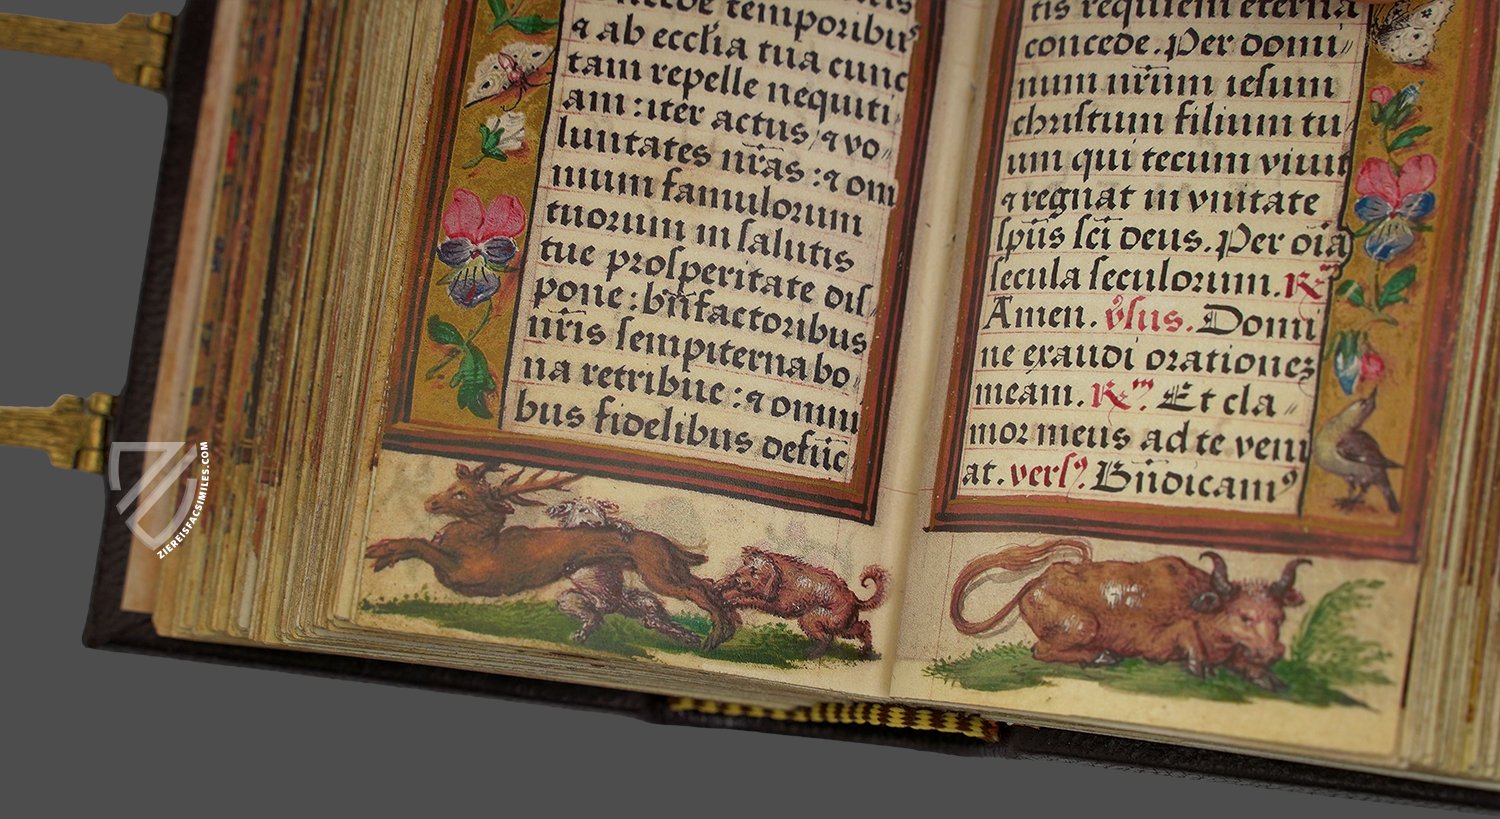 temporibus
⁊ ab ecclia tua cunc
tam repelle nequiti,
am : iter actus, ⁊ vo,
luntates nr̄as : ⁊ om
nium famulorum
tuorum in salutis
tue prosperitate dis,
pone : bn̄factoribus
nr̄is sempiterna bo,
na retribue : ⁊ omni
bus fidelibus defūc
tis requiem eterna
concede. Per domi,,
num nr̄um iesum
christum filium tu,
um qui tecum viuit
⁊ regnat in vnitate
sp̄us sc̄i deus. Per oīa
secula seculorum. R.
Amen. v̄sus. Domi
ne exaudi orationez
meam. R. Et cla,,
mor meus ad te veni
at. vers9. Bn̄dicam9
ZIEREISFACSIMILES.COM